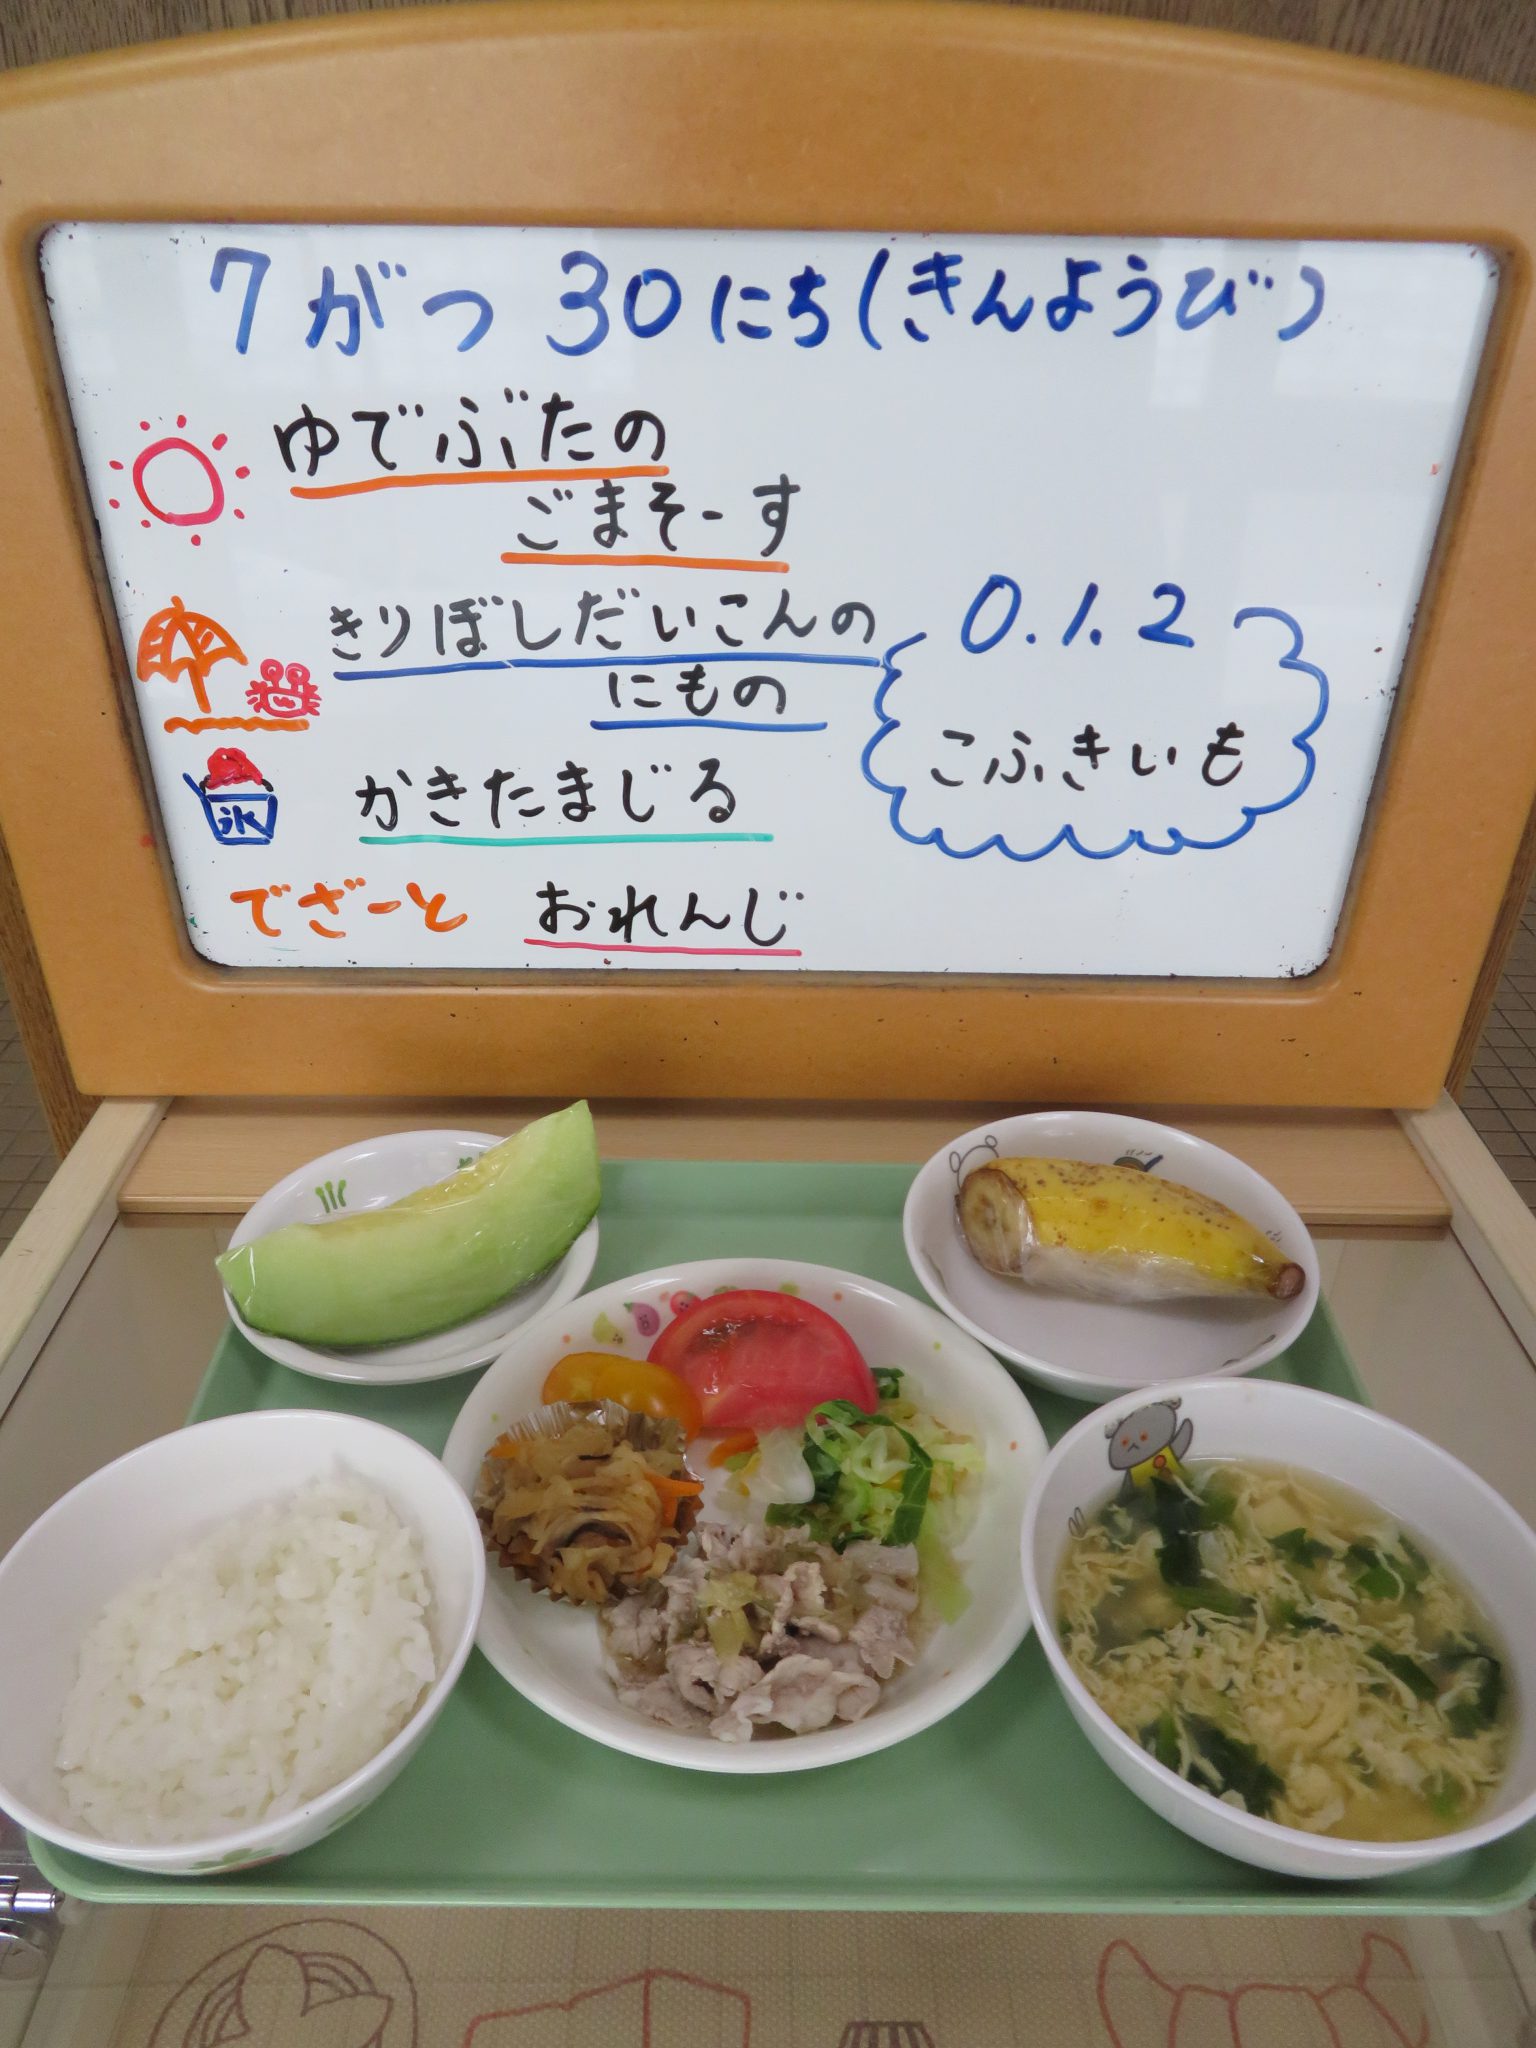 7がつ 30にち(きんようび)
ゆでぶたの
ごまそーす
きりぼしだいこんの
にもの
0.1.2
こふきいも
かきたまじる
氷
でざーと おれんじ